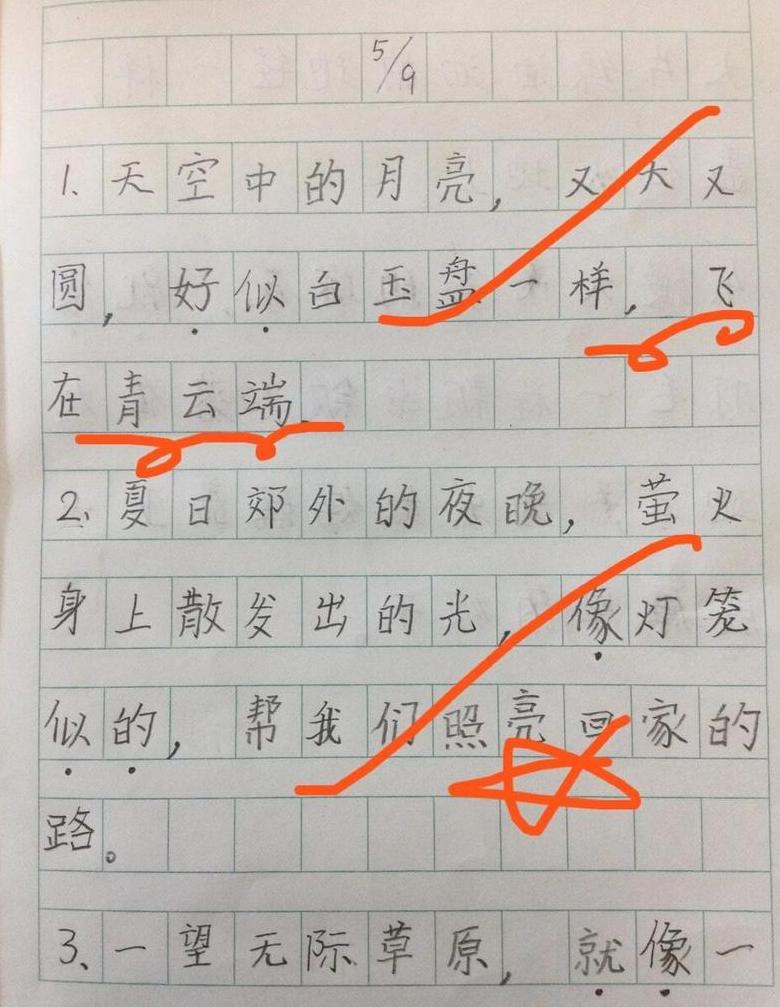 5/9
1. 天空中的月亮，又大又
圆，好似白玉盘一样，飞
在青云端.
2、夏日郊外的夜晚，萤火
身上散发出的光，像灯笼
似的，帮我们照亮回家的
路。
3、一望无际草原，就像一